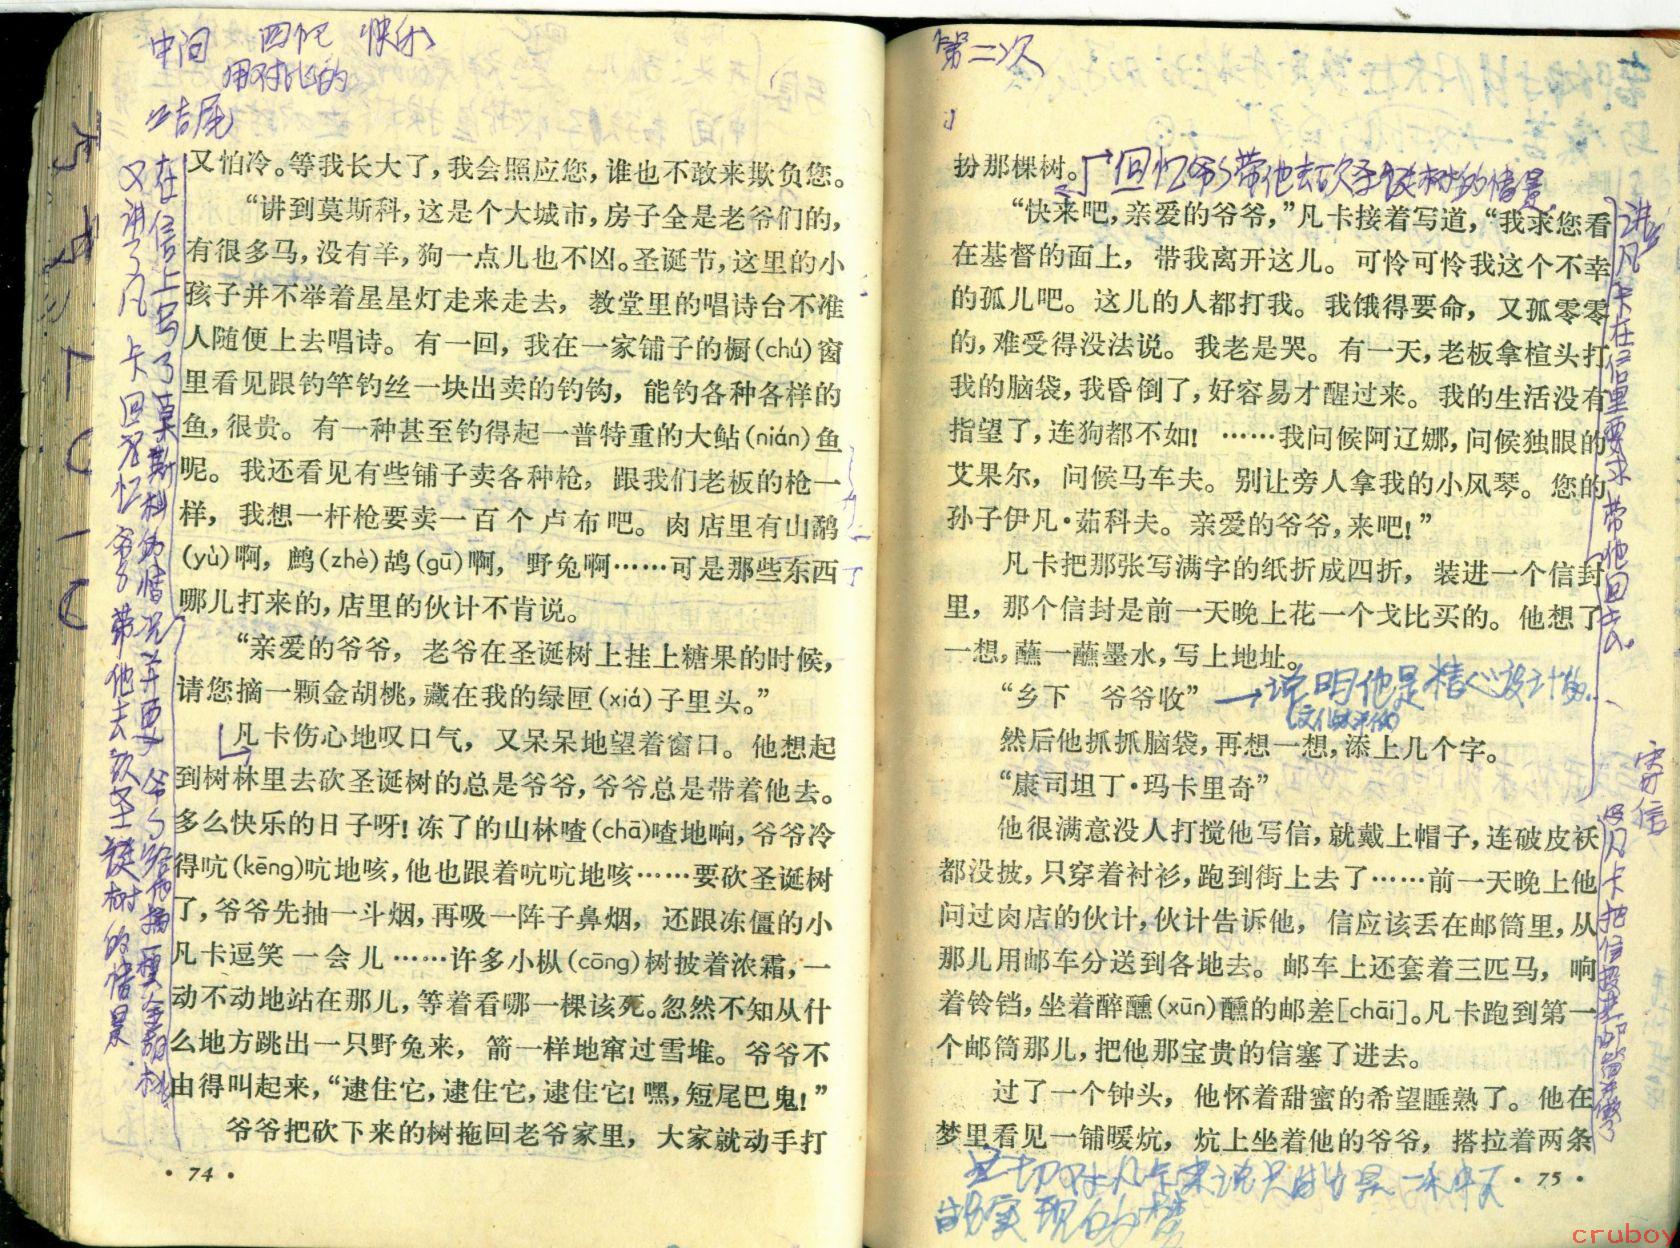 中间 回忆 快乐
用对比的
结尾
在信上写了莫斯科的情况并要爷爷给他摘一颗金胡桃
又讲了凡卡回忆爷爷带他去砍圣诞树的情景.
又怕冷。等我长大了，我会照应您，谁也不敢来欺负您。
“讲到莫斯科，这是个大城市，房子全是老爷们的，
有很多马，没有羊，狗一点儿也不凶。圣诞节，这里的小
孩子并不举着星星灯走来走去，教堂里的唱诗台不准
人随便上去唱诗。有一回，我在一家铺子的橱(chú)窗
里看见跟钓竿钓丝一块出卖的钓钩，能钓各种各样的
鱼，很贵。有一种甚至钓得起一普特重的大鲇(nián)鱼
呢。我还看见有些铺子卖各种枪，跟我们老板的枪一
样，我想一杆枪要卖一百个卢布吧。肉店里有山鹬
(yù)啊，鹧(zhè)鸪(gū)啊，野兔啊……可是那些东西
哪儿打来的，店里的伙计不肯说。
“亲爱的爷爷，老爷在圣诞树上挂上糖果的时候，
请您摘一颗金胡桃，藏在我的绿匣(xiá)子里头。”
凡卡伤心地叹口气，又呆呆地望着窗口。他想起
到树林里去砍圣诞树的总是爷爷，爷爷总是带着他去。
多么快乐的日子呀！冻了的山林喳(chā)喳地响，爷爷冷
得吭(kēng)吭地咳，他也跟着吭吭地咳……要砍圣诞树
了，爷爷先抽一斗烟，再吸一阵子鼻烟，还跟冻僵的小
凡卡逗笑一会儿……许多小枞(cōng)树披着浓霜，一
动不动地站在那儿，等着看哪一棵该死。忽然不知从什
么地方跳出一只野兔来，箭一样地窜过雪堆。爷爷不
由得叫起来，“逮住它，逮住它，逮住它！嘿，短尾巴鬼！”
爷爷把砍下来的树拖回老爷家里，大家就动手打
·74·
第二次
扮那棵树。
回忆爷爷带他去砍圣诞树的情景.
“快来吧，亲爱的爷爷，”凡卡接着写道，“我求您看
在基督的面上，带我离开这儿。可怜可怜我这个不幸
的孤儿吧。这儿的人都打我。我饿得要命，又孤零零
的，难受得没法说。我老是哭。有一天，老板拿楦头打
我的脑袋，我昏倒了，好容易才醒过来。我的生活没有
指望了，连狗都不如！……我问候阿辽娜，问候独眼的
艾果尔，问候马车夫。别让旁人拿我的小风琴。您的
孙子伊凡·茹科夫。亲爱的爷爷，来吧！”
凡卡把那张写满字的纸折成四折，装进一个信封
里，那个信封是前一天晚上花一个戈比买的。他想了
一想，蘸一蘸墨水，写上地址。
“乡下　爷爷收”
→说明他是精心设计的.
然后他抓抓脑袋，再想一想，添上几个字。
“康司坦丁·玛卡里奇”
他很满意没人打搅他写信，就戴上帽子，连破皮袄
都没披，只穿着衬衫，跑到街上去了……前一天晚上他
问过肉店的伙计，伙计告诉他，信应该丢在邮筒里，从
那儿用邮车分送到各地去。邮车上还套着三匹马，响
着铃铛，坐着醉醺(xūn)醺的邮差[chāi]。凡卡跑到第一
个邮筒那儿，把他那宝贵的信塞了进去。
过了一个钟头，他怀着甜蜜的希望睡熟了。他在
梦里看见一铺暖炕，炕上坐着他的爷爷，搭拉着两条
·75·
讲凡卡在信里要求带他回去。
寄信
能实现的梦
cruboy